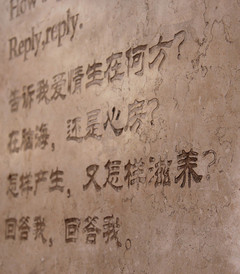 How
Reply, reply.
告诉我爱情生在何方？
在脑海，还是心房？
怎样产生，又怎样滋养？
回答我，回答我。